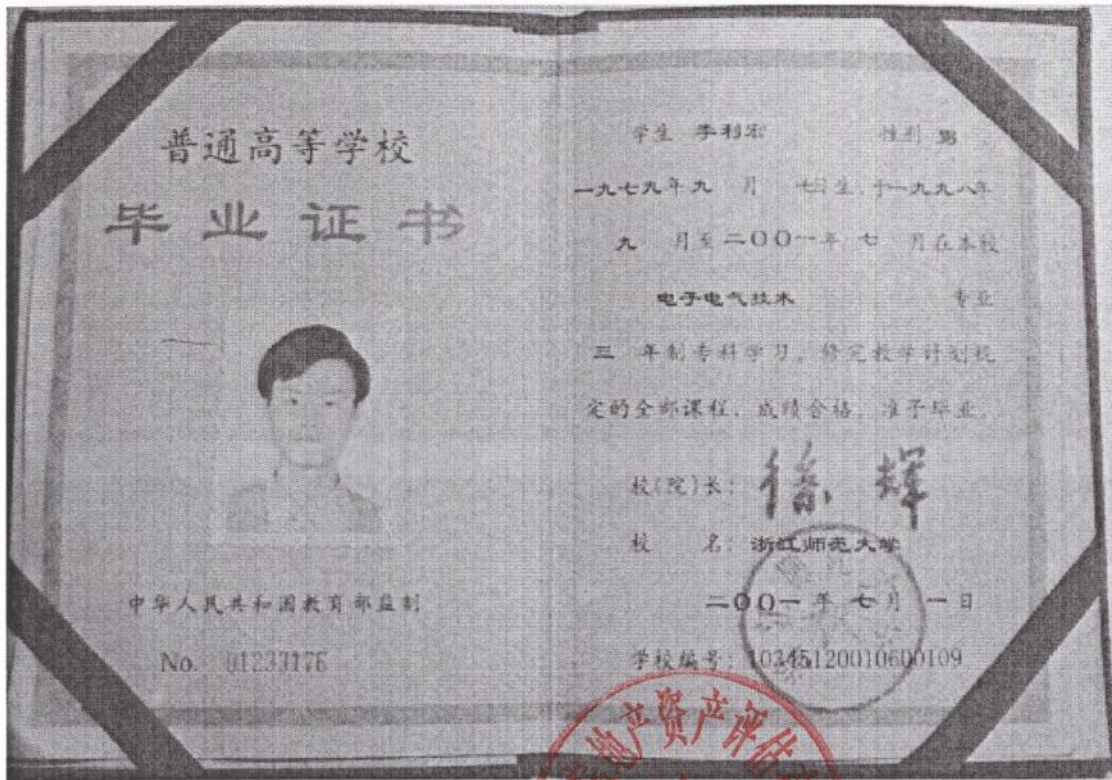 普通高等学校
毕业证书
中华人民共和国教育部监制
No. 01233176
学生 李利宏 性别 男
一九七九年九 月 七日生,于一九九八年
九 月至二〇〇一年 七 月在本校
电子电气技术 专业
三 年制专科学习,修完教学计划规
定的全部课程,成绩合格,准予毕业。
校(院)长: 徐辉
校 名: 浙江师范大学
二〇〇一年七月一日
学校编号: 10345120010600109
产资产评估